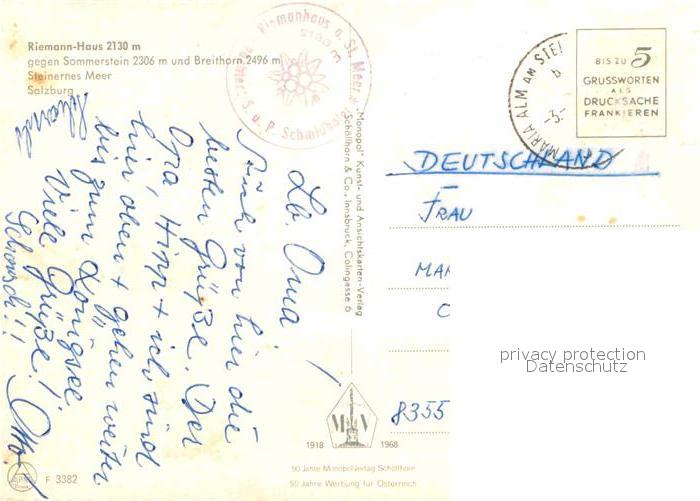 Riemann-Haus 2130 m
gegen Sommerstein 2306 m und Breithorn 2496 m
Steinernes Meer
Salzburg
Riemannhaus a. St. Meer
2130 m
S. u. P.
MARIA ALM AM STEI
BIS ZU 5
GRUSSWORTEN
ALS
DRUCKSACHE
FRANKIEREN
Lb. Oma!
Auch von hier die
besten Grüße. Der
Opa, + ich sind
hier oben + gehen weiter
bis zum Königsee.
Viele Grüße!
Otto
„Monopol" Kunst- und Ansichtskarten-Verlag
Schöllhorn & Co., Innsbruck, Colingasse 6
DEUTSCHLAND
FRAU
MAR
8355
privacy protection
Datenschutz
M V
1918 1968
50 Jahre Monopolverlag Schöllhorn
50 Jahre Werbung für Österreich
F 3382